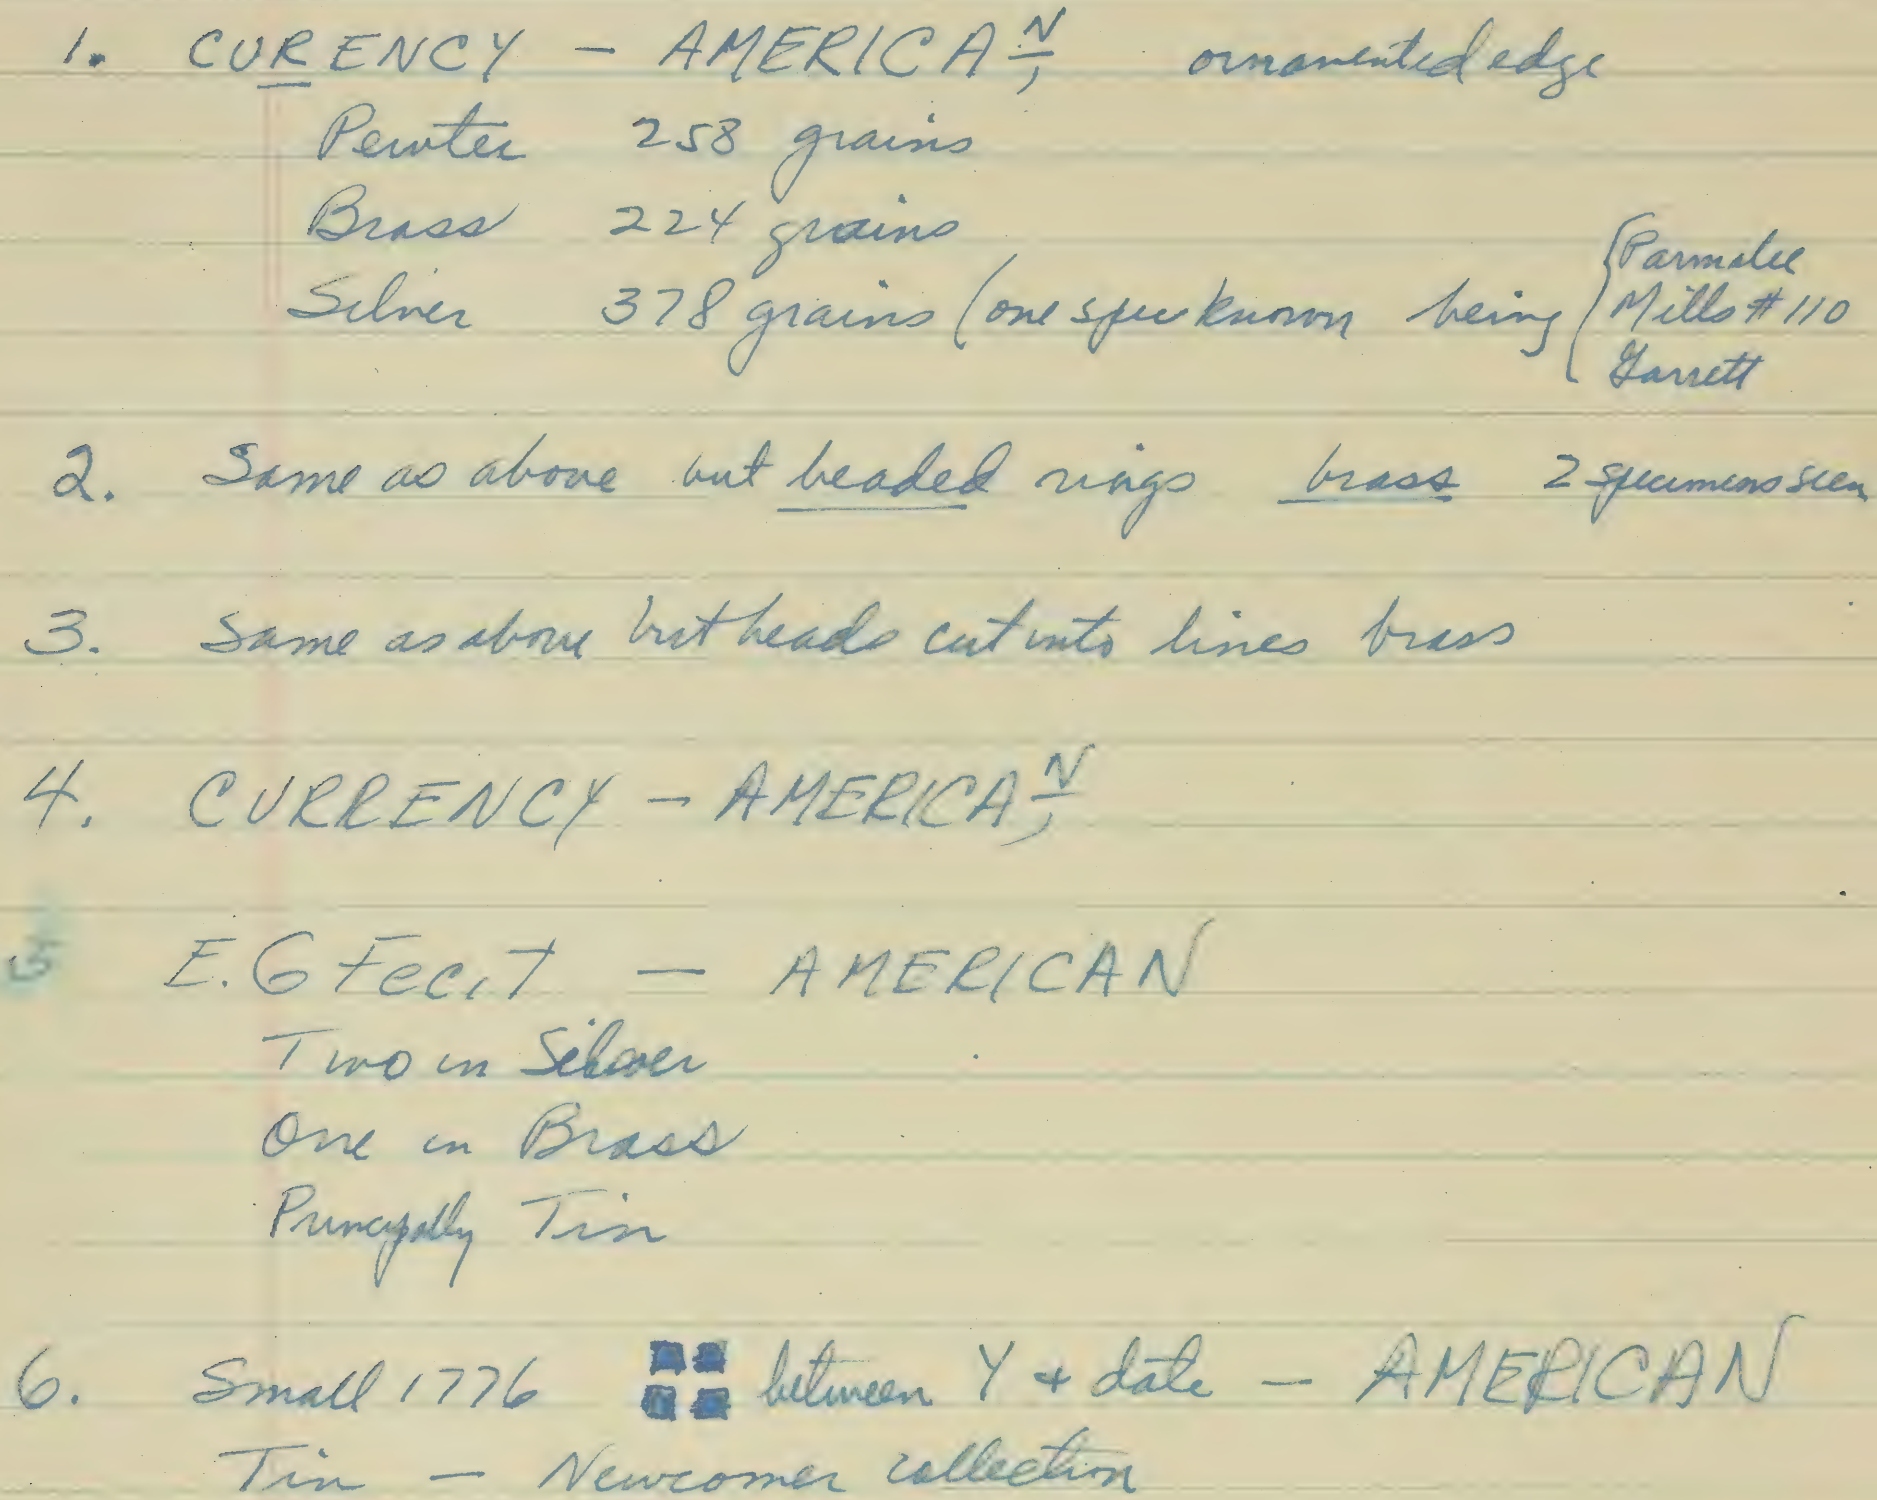 1. CURENCY - AMERICAN, ornamented edge
Pewter 258 grains
Brass 224 grains
Silver 378 grains (one spec known being { Parmalee
Mills #110
Garrett
2. Same as above but beaded rings brass 2 specimens seen
3. Same as above but beads cut into lines brass
4. CURRENCY - AMERICAN,
5 E.G Fecit - AMERICAN
Two in Silver
One in Brass
Principally Tin
6. Small 1776 between Y + date - AMERICAN
Tin - Newcomer collection